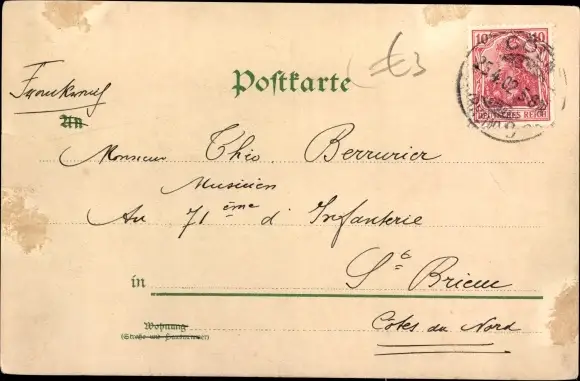 €3
10 10
DEUTSCHES REICH
CÖLN
25.4.02
Postkarte
Frankreich
An
Monsieur Théo Berrurier
Musicien
Au 71ème d'Infanterie
in St Brieuc
Wohnung
(Straße und Hausnummer)
Côtes du Nord